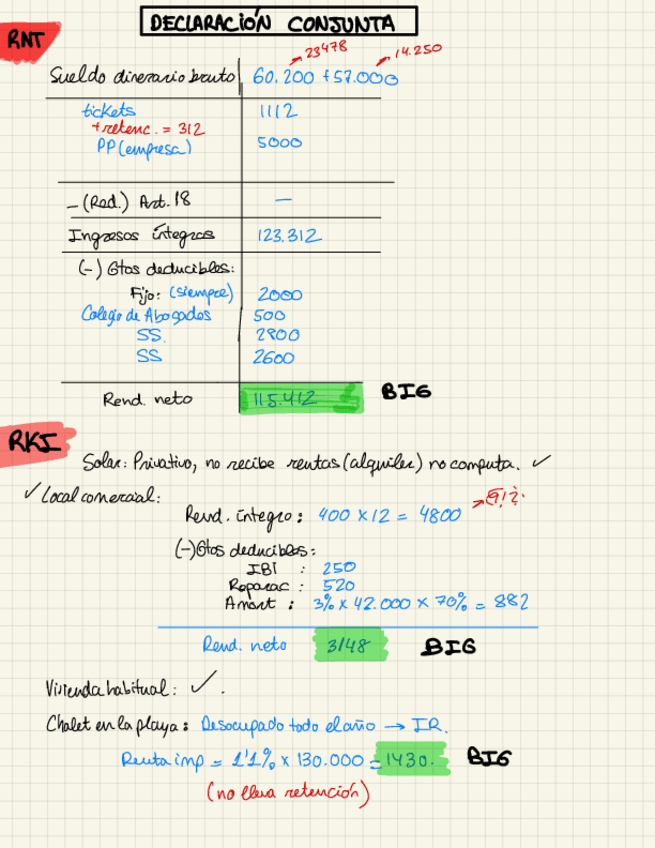 DECLARACIÓN CONJUNTA
RNT
23478 14.250
Sueldo dinerario bruto 60.200 + 57.000
tickets 1112
+ retenc. = 312
PP (empresa) 5000
- (Red.) Art. 18 —
Ingresos íntegros 123.312
(-) Gtos deducibles:
Fijo: (siempre) 2000
Colegio de Abogados 500
SS. 2800
SS 2600
Rend. neto 115.412 BIG
RKI
Solar: Privativo, no recibe rentas (alquiler) no computa. ✓
✓ Local comercial:
Rend. íntegro: 400 x 12 = 4800
(-) Gtos deducibles:
IBI : 250
Reparac : 520
Amort : 3% x 42.000 x 70% = 882
Rend. neto 3148 BIG
Vivienda habitual: ✓.
Chalet en la playa: Desocupado todo el año → IR.
Renta imp = 1'1% x 130.000 = 1430. BIG
(no lleva retención)